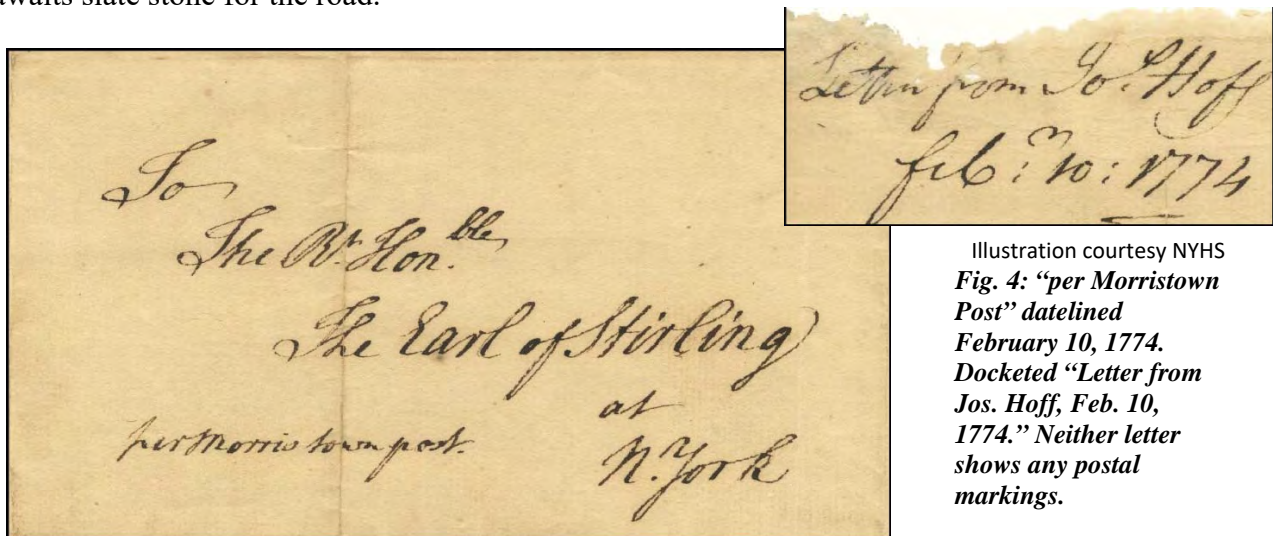 awaits slate stone for the road.
To
The Rt. Hon.ble
The Earl of Stirling
at
N. York
per Morris town post.
Letter from Jos. Hoff
feb.ry 10: 1774
Illustration courtesy NYHS
Fig. 4: “per Morristown
Post” datelined
February 10, 1774.
Docketed “Letter from
Jos. Hoff, Feb. 10,
1774.” Neither letter
shows any postal
markings.